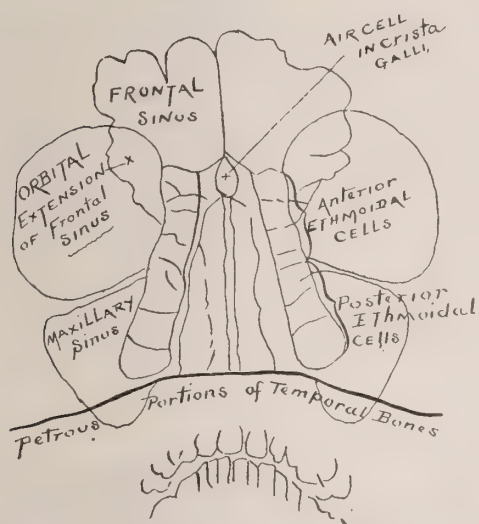 AIR CELL
IN CRISTA
GALLI,
FRONTAL
SINUS
ORBITAL
EXTENSION x
OF Frontal
SINUS
ANTERIOR
ETHMOIDAL
CELLS
MAXILLARY
Sinus
Posterior
EThmoidal
CELLS
Petrous Portions of Temporal Bones